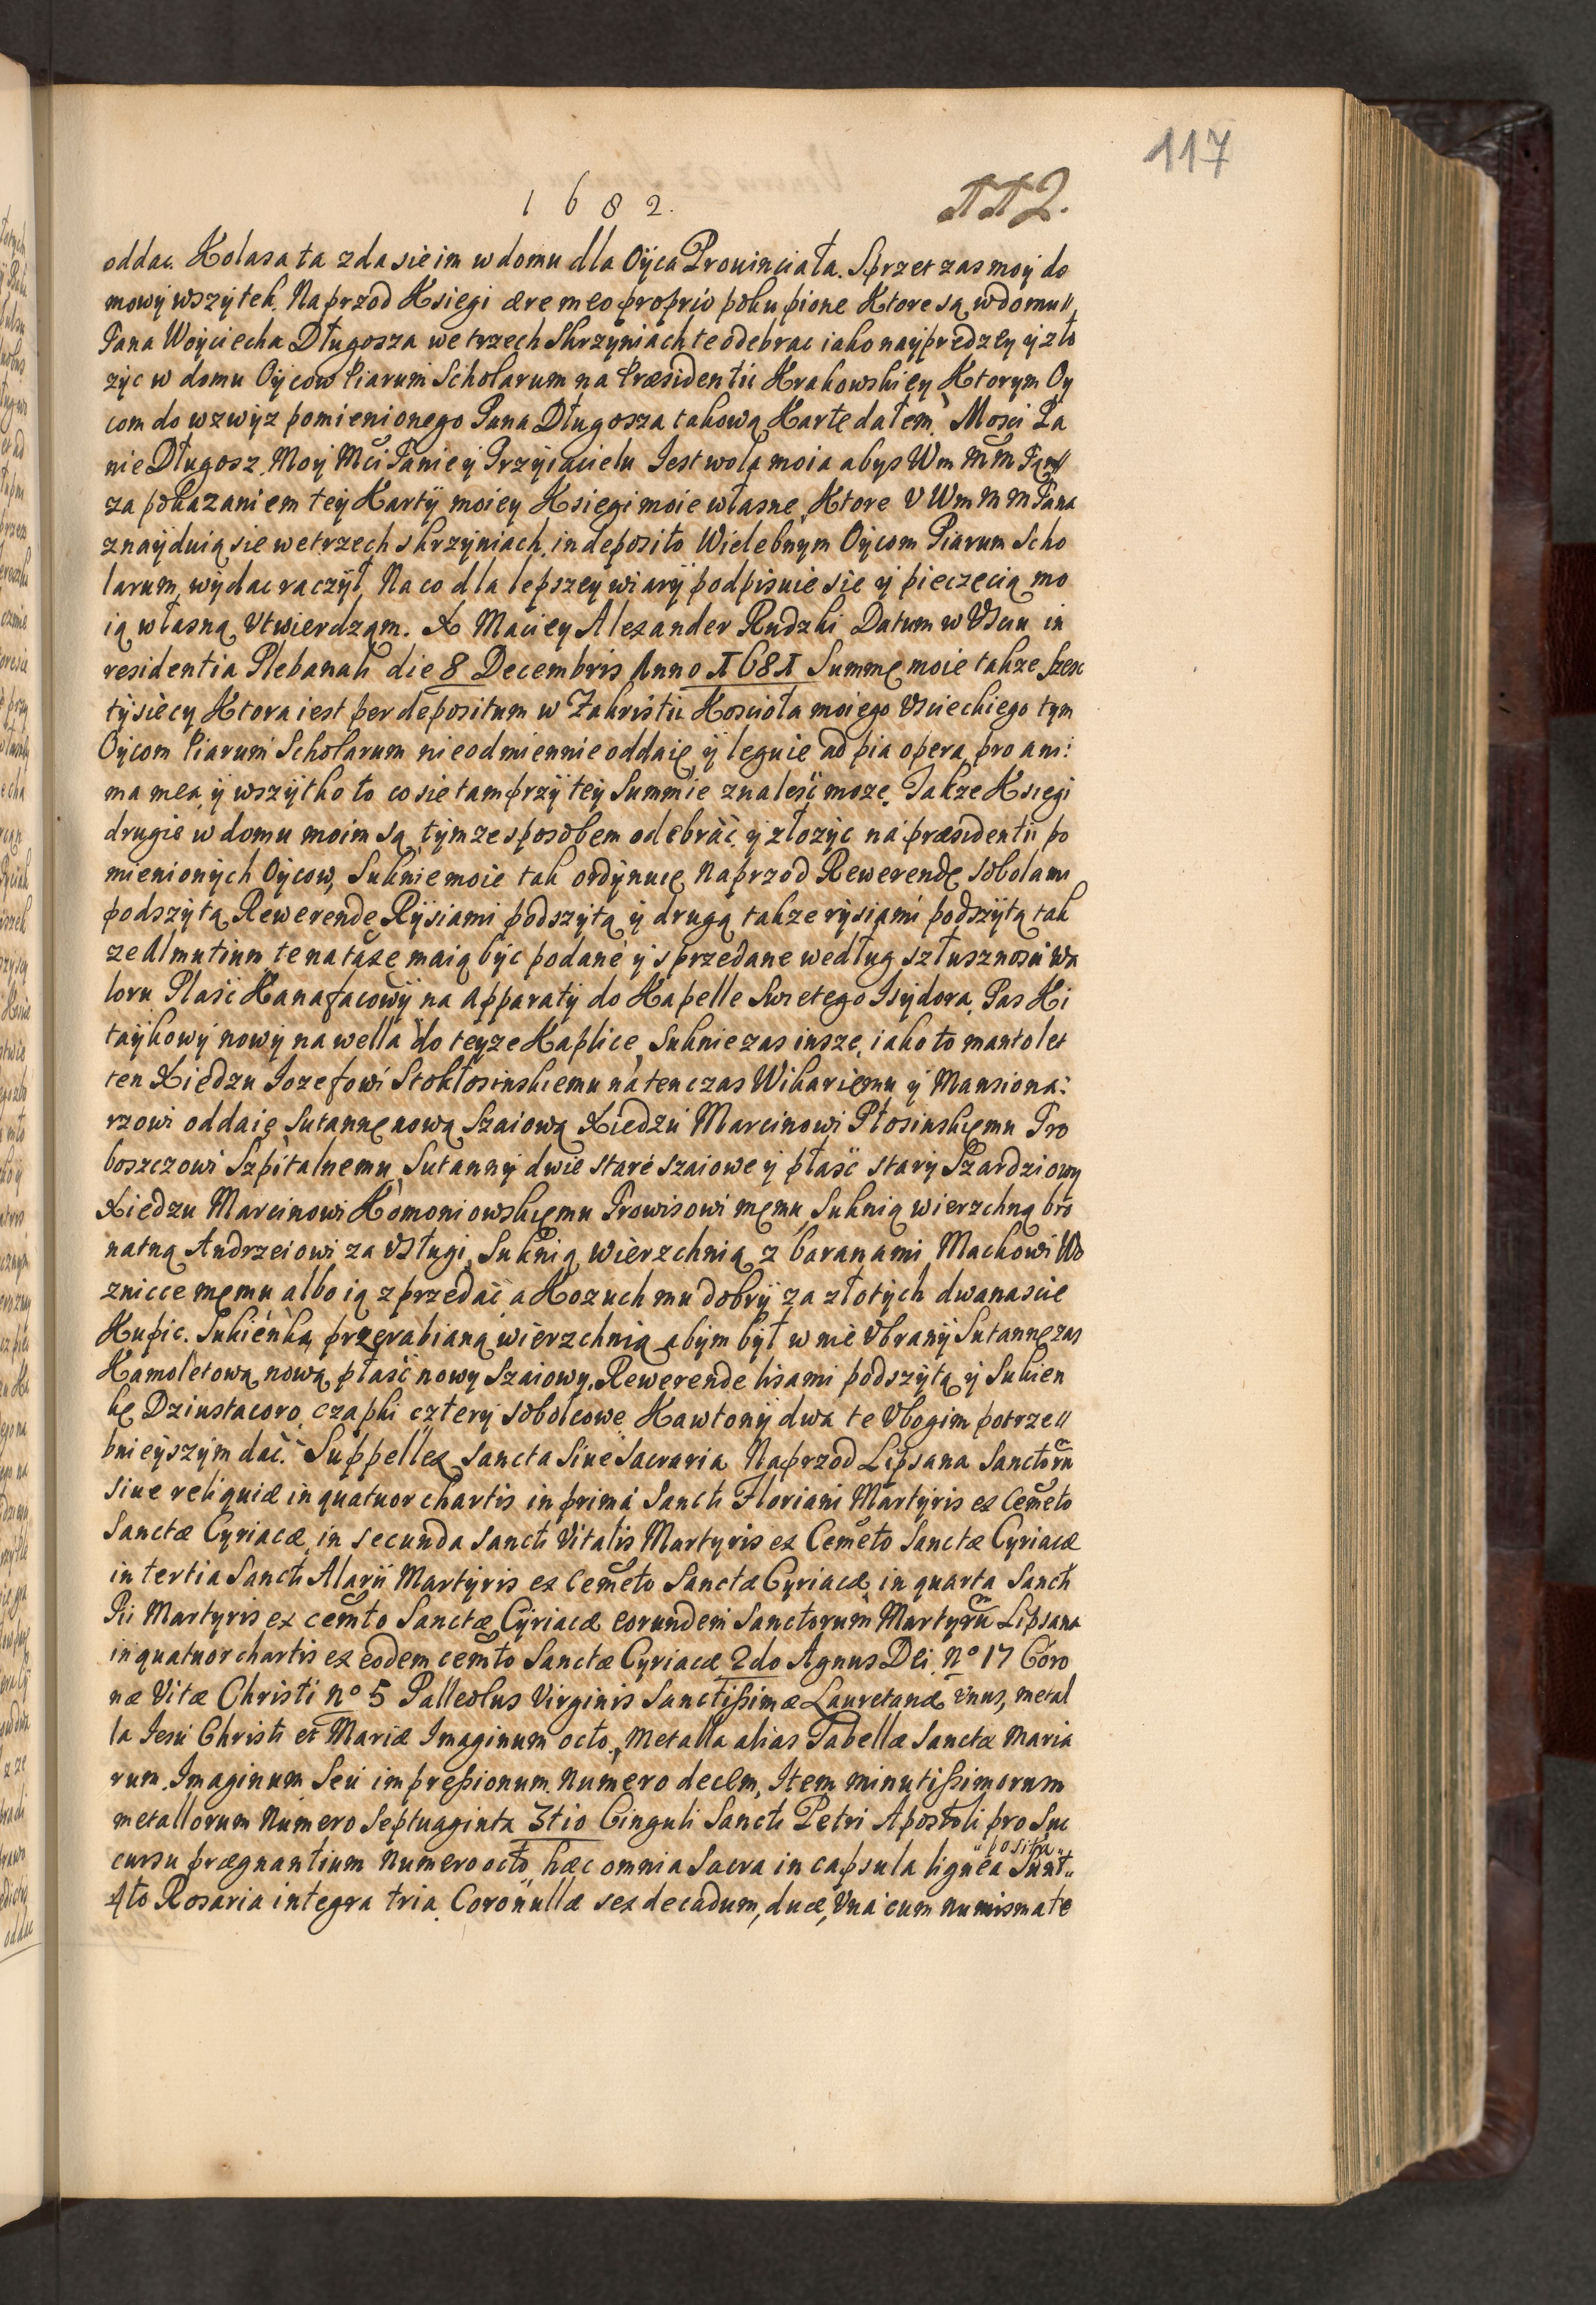 117
1682.
112.
oddac. Kolasa ta zda sie im w domu dla Oÿca Prouinciała. Sprzet zas moÿ do
mowÿ wszÿtek. Naprzod Ksiegi ære meo proprio pokupione Ktore są w domu//
Pana Woÿciecha Długosza we trzech Skrzÿniach te odebrac iako naÿpredzeÿ ÿ zło
zÿc w domu Oÿcow Piarum Scholarum na Præsidentii Krakowskieÿ Ktorym Oÿ
com do wzwÿz pomienionego Pana Długosza takową Karte dałem. Mosci Pa
nie Długosz Moÿ Mći Panie ÿ Przÿiacielu Iest wola moia abys Wm m̃ m̃ Pan//
za pokazaniem teÿ Kartÿ moieÿ Ksiegi moie własne, Ktore V Wm M M Pana
znaÿduią sie we trzech skrzÿniach, in deposito Wielebnÿm Oÿcom Piarum Scho
larum, wÿdac raczÿł, Na co dla lepszeÿ wiarÿ podpisuie sie ÿ pieczecią mo
ią własną Vtwierdzam. X Macieÿ Alexander Rudzki Datum w Vsciu in
residentia Plebanali die 8 Decembris Anno 1681 Summę moie takze szesc
tÿsiecÿ Ktora iest per depositum w Zakristii Kosciola moiego Vscieckiego tÿm
Oÿcom Piarum Scholarum nieodmiennie oddaię ÿ leguie ad pia opera pro ani:
ma mea, ÿ wszÿtko to co sie tam przÿ teÿ Summie znalesć moze, Takze Ksiegi
drugie w domu moim są, tÿmze sposobem odebrać ÿ złozÿc na præsidentii po
mienionÿch Oÿcow, Suknie moie tak ordÿnuię Naprzod Rewerendę sobolami
podszÿtą, Rewerendę Rÿsiami podszÿtą ÿ drugą takze rÿsiami podszÿtą tak
ze Almutium te na taxe maią bÿc podane ÿ sprzedane według słusznosci wa
loru Płasć Kanafacowÿ na apparatÿ do Kapelle Swietego Isÿdora, Pas Ki
taÿkowÿ nowÿ na wella do teÿze Kaplice, Suknie zas insze, iako to mantolet
ten Xiedzu Iozefowi Stokłosinskiemu na tenczas Wikariemu ÿ Mansiona:
rzowi oddaię Sutannę nową Szaiową Xiedzu Marcinowi Płosinskiemu Pro
boszczowi Szpitalnemu, Sutannÿ dwie stare szaiowe ÿ płasć starÿ Szardziowÿ
Xiedzu Marcinowi Komoniowskiemu Prowisowi memu, Suknią wierzchną bro
natną Andrzeiowi za Vsługi, Suknią wierzchnią z baranami Machowi Wo
znicce memu albo ią zprzedać a Kozuch mu dobrÿ za złotÿch dwanascie
Kupic. Sukienką przerabianą wierzchnią abÿm bÿł w nie Vbranÿ Sutannę zas
Kamoletową nową, płasć nowÿ Szaiowÿ, Rewerende lisami podszÿtą ÿ Sukien
kę Dziustacoro, czapki czterÿ sobolcowe Kawtonÿ dwa te Vbogim potrze//
bnieÿszÿm dać. Suppellex sancta siue Sacraria Naprzod Lipsana Sanctorũ
siue reliquiæ in quatuor chartis in prima Sancti Floriani Martÿris ex Cem̃eto
Sanctæ Cÿriacæ, in secunda Sancti Vitalis Martÿris ex Cem̃eto Sanctæ Cÿriacæ
in tertia Sancti Alarÿ Martÿris ex Cem̃eto Sanctæ Cÿriacæ in quarta Sancti
Pii Martÿris ex cem̃to Sanctæ Cÿriacæ eorundem Sanctorum Martyrũ Lipsana
in quatuor chartis ex eodem cem̃to Sanctæ Cÿriacæ 2do Agnus Dei No 17 Coro
næ Vitæ Christi No 5 Palleolus Virginis Sanctissimæ Lauretanæ Vnus, metal
la Iesu Christi et Mariæ Imaginum octo, Metalla alias Tabellæ Sanctæ Maria
rum, Imaginum Seu impressionum Numero decem, Item minutissimorum
metallorum Numero Septuaginta 3tio Cinguli Sancti Petri Apostoli pro Suc
cursu prægnantium Numero octo, hæc omnia Sacra in capsula lignea "posita" Sunt,,
4to Rosaria integra tria, Coronullæ sex decadum, duæ, Vna cum numismate